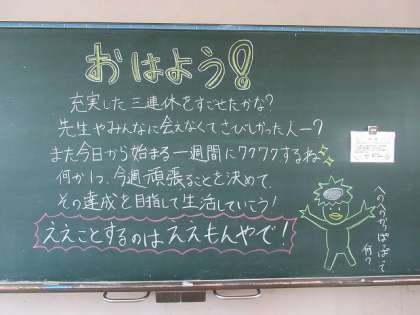 おはよう!
充実した三連休をすごせたかな?
先生やみんなに会えなくてさびしかった人ー?
また今日から始まる一週間にワクワクするね
何か1つ、今週頑張ることを決めて、
その達成を目指して生活していこう!
ええことするのはええもんやで!
へのへのかっぱっぱって
何?